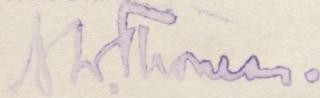 N. W. Thomas.